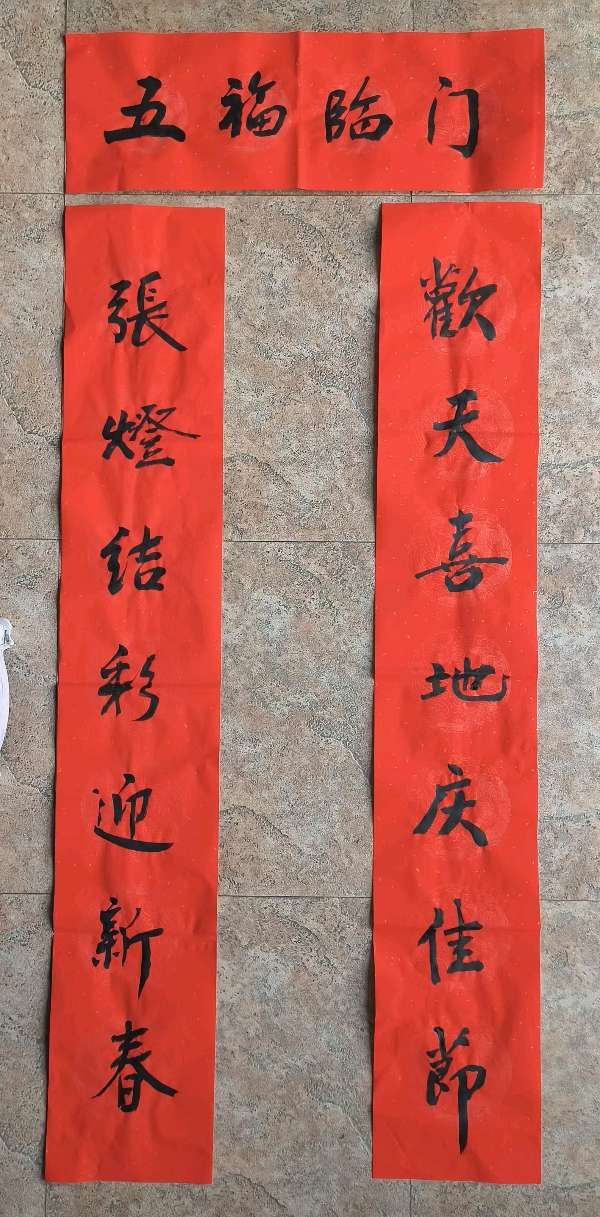 五福临门
歡天喜地庆佳節
張燈结彩迎新春